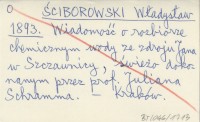 O
ŚCIBOROWSKI Władysław
1893. Wiadomość o rozbiorze
chemicznym wody ze zdroju Jana
w Szczawnicy, świeżo doko-
nanym przez prof. Juliana
Schramma. - Kraków.